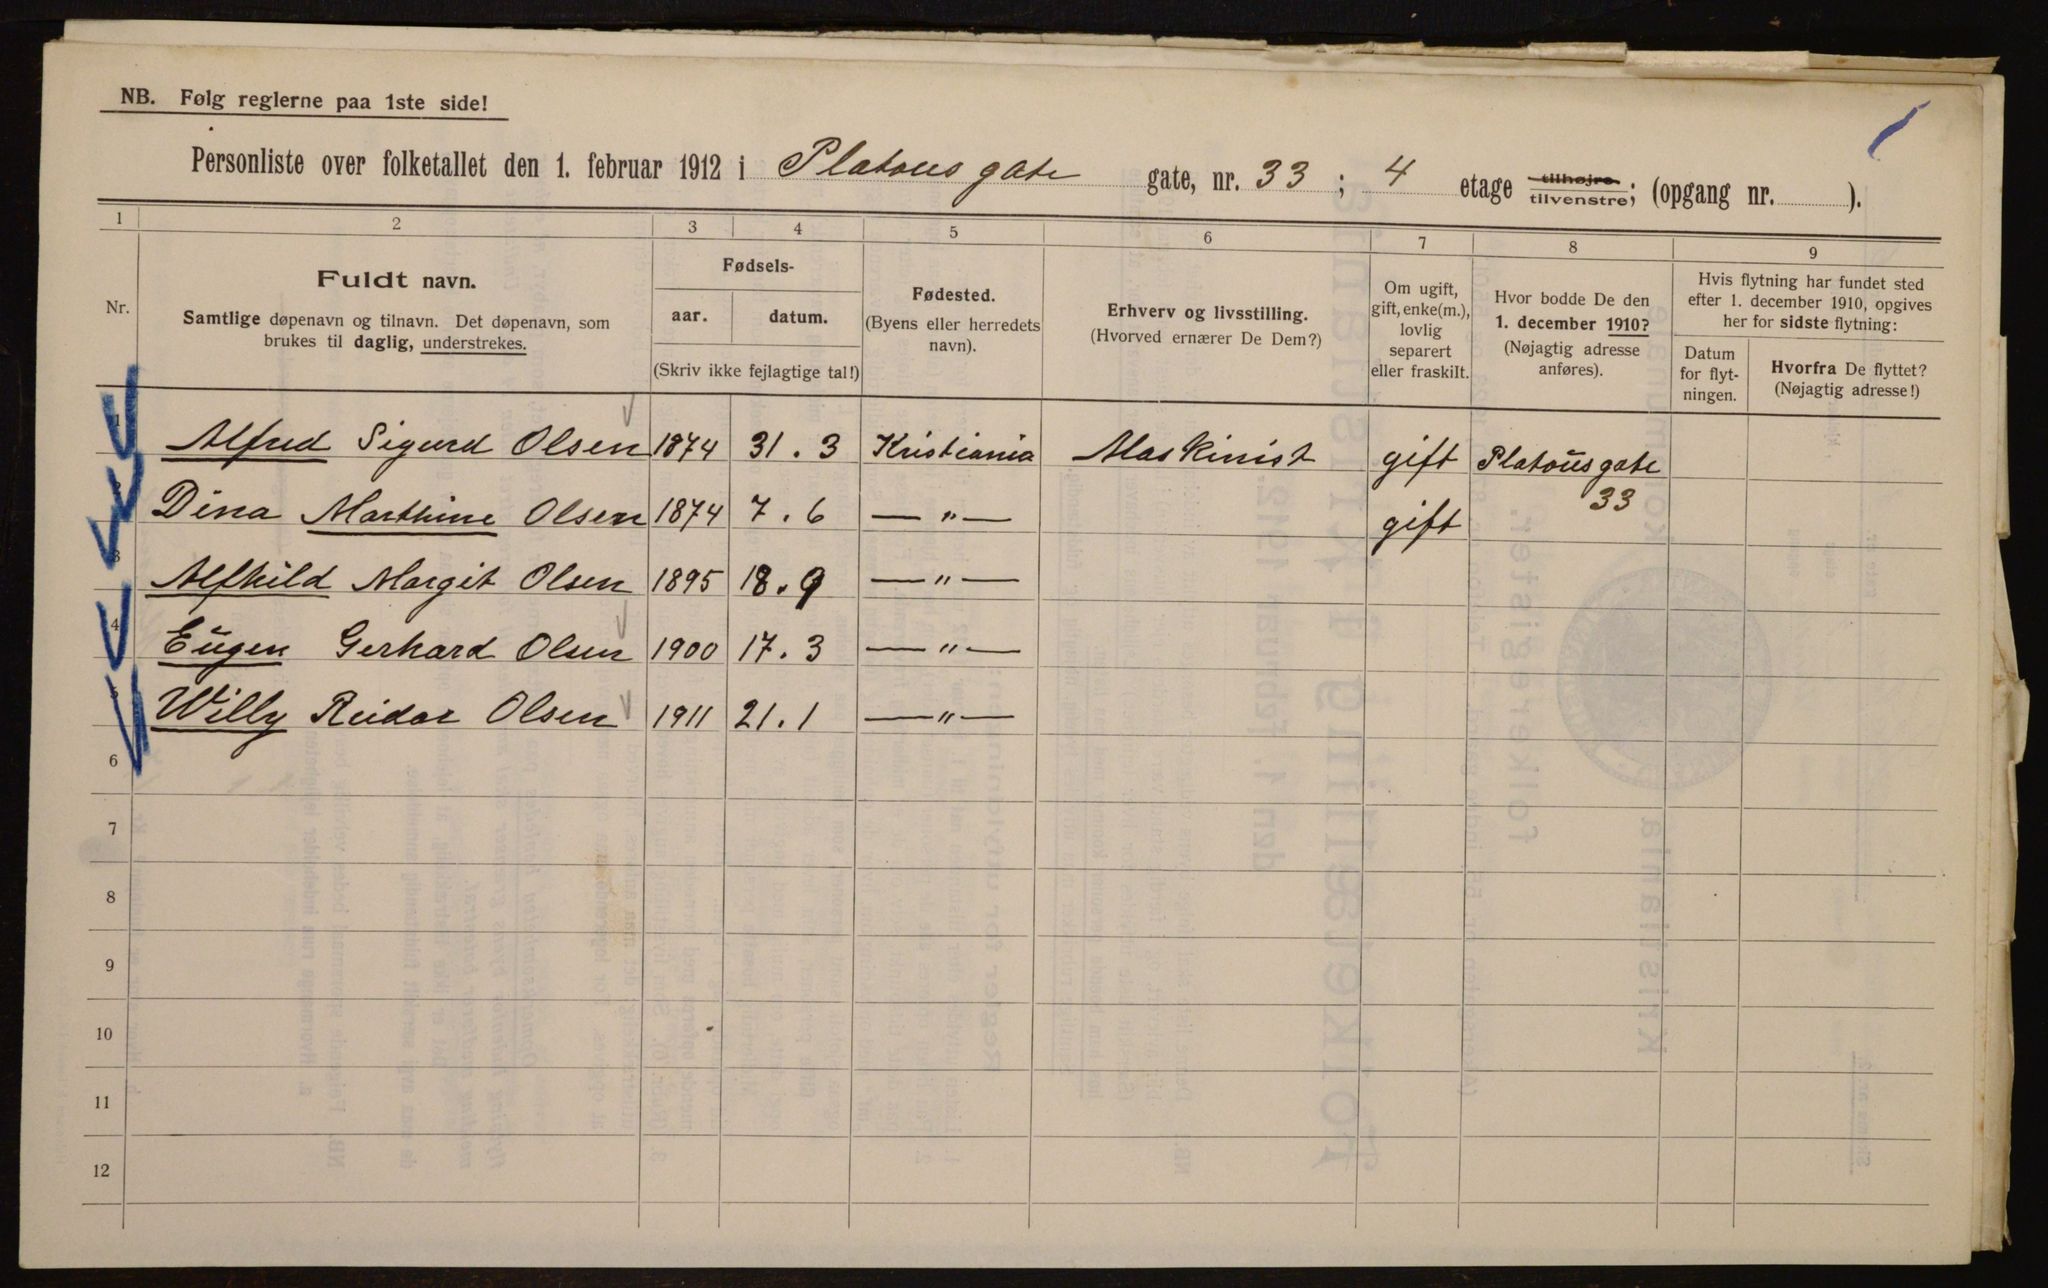 NB. Følg reglerne paa 1ste side!
Personliste over folketallet den 1. februar 1912 i Platous gate gate, nr. 33 ; 4 etage tilhøjre tilvenstre; (opgang nr. ).
1 2 3 4 5 6 7 8 9
Nr.
Fuldt navn.
Samtlige døpenavn og tilnavn. Det døpenavn, som
brukes til daglig, understrekes.
Fødsels-
aar. datum.
(Skriv ikke fejlagtige tal!)
Fødested.
(Byens eller herredets
navn).
Erhverv og livsstilling.
(Hvorved ernærer De Dem?)
Om ugift,
gift, enke(m.),
lovlig
separert
eller fraskilt.
Hvor bodde De den
1. december 1910?
(Nøjagtig adresse
anføres).
Hvis flytning har fundet sted
efter 1. december 1910, opgives
her for sidste flytning:
Datum
for flyt-
ningen.
Hvorfra De flyttet?
(Nøjagtig adresse!)
1 Alfred Sigurd Olsen 1874 31.3 Kristiania Maskinist gift Platousgate
33
2 Dina Marthine Olsen 1874 7.6 —"— gift
3 Alfhild Margit Olsen 1895 18.9 —"—
4 Eugen Gerhard Olsen 1900 17.3 —"—
5 Willy Reidar Olsen 1911 21.1 —"—
6
7
8
9
10
11
12